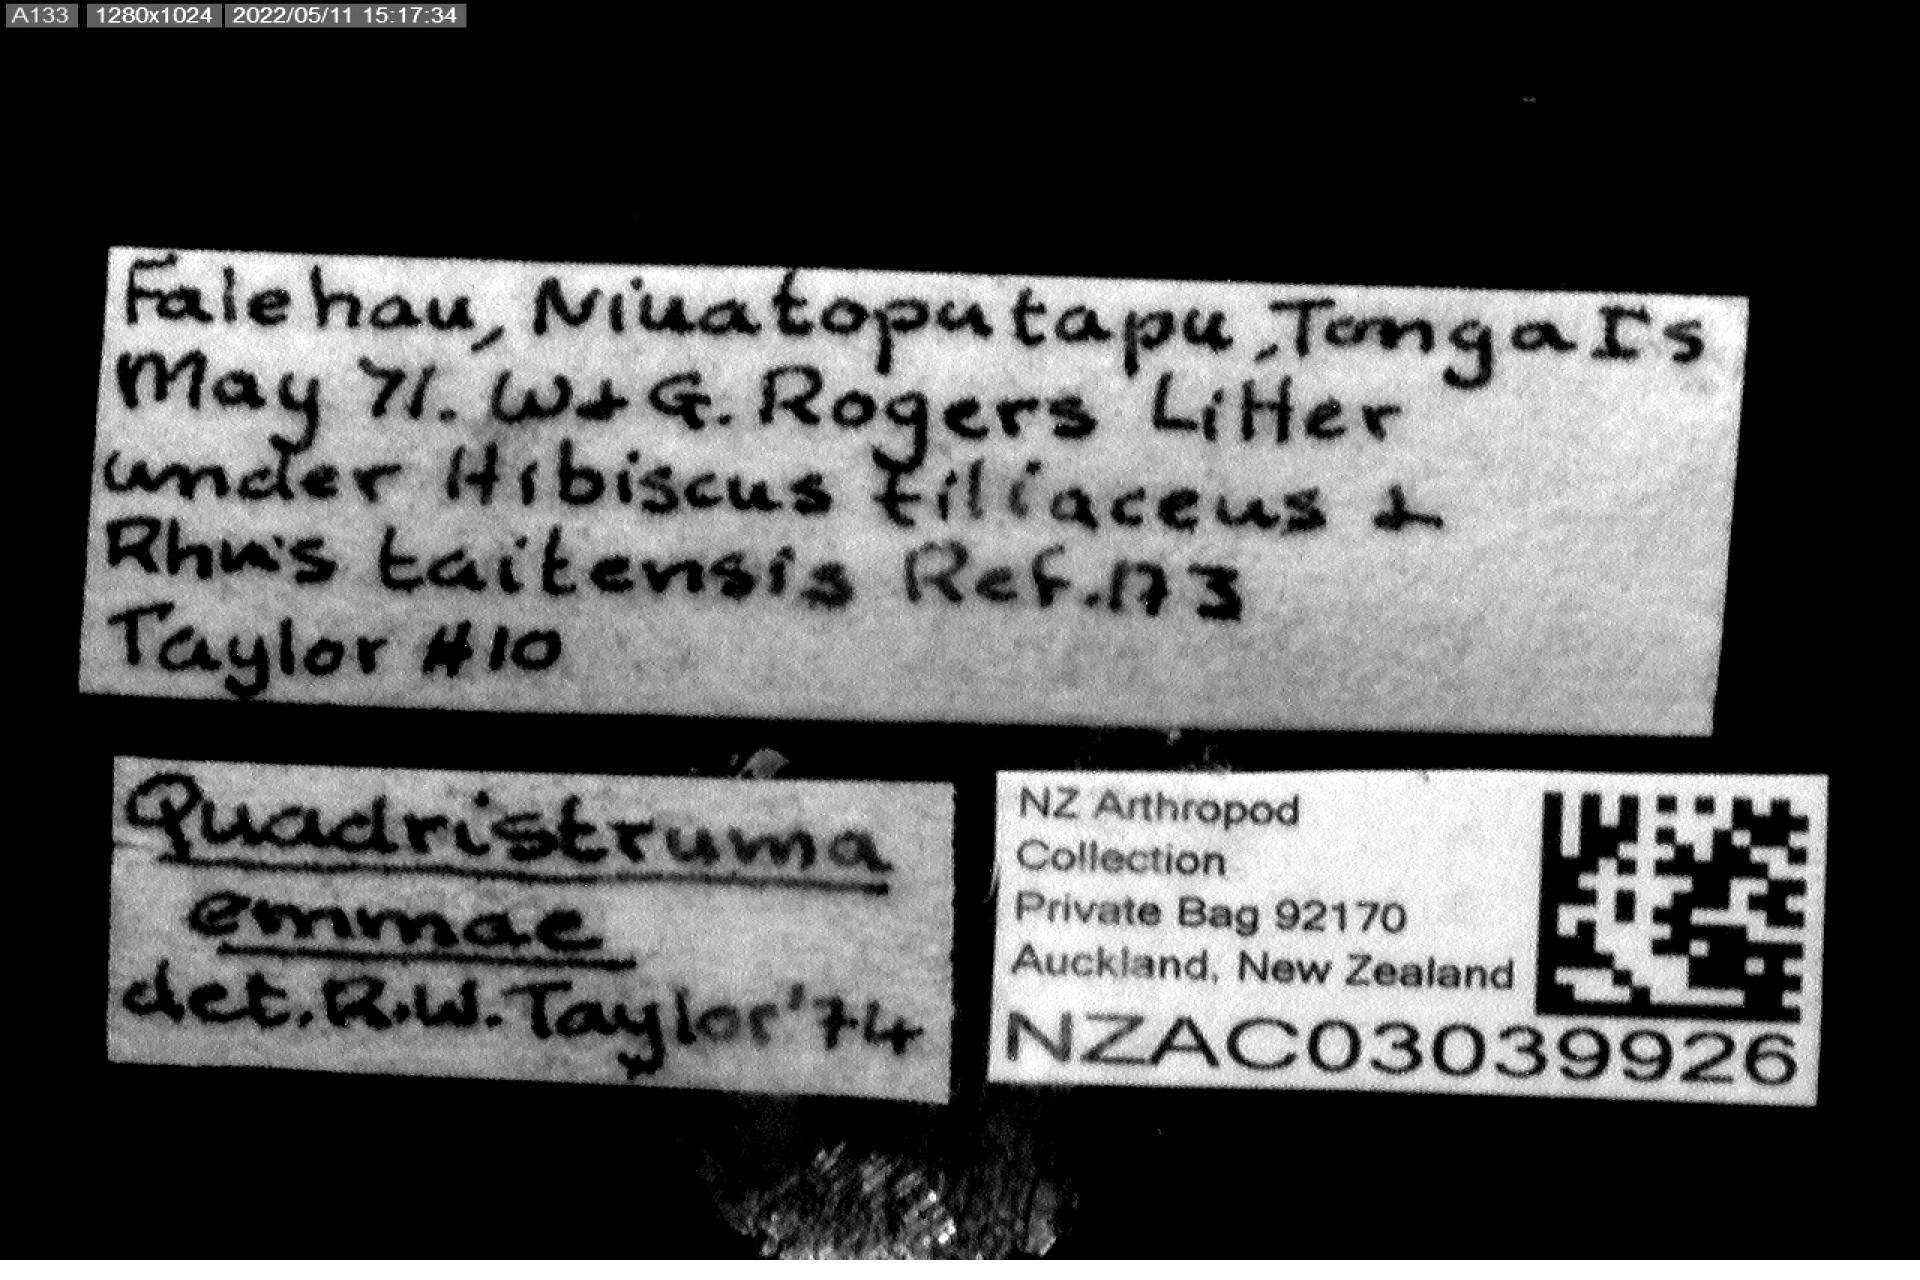 A133 1280x1024 2022/05/11 15:17:34
Falehau, Niuatoputapu, Tonga Is
May 71. W & G. Rogers Litter
under Hibiscus tiliaceus &
Rhus taitensis Ref. 173
Taylor #10
Quadristruma
emmae
det. R.W. Taylor '74
NZ Arthropod
Collection
Private Bag 92170
Auckland, New Zealand
NZAC03039926